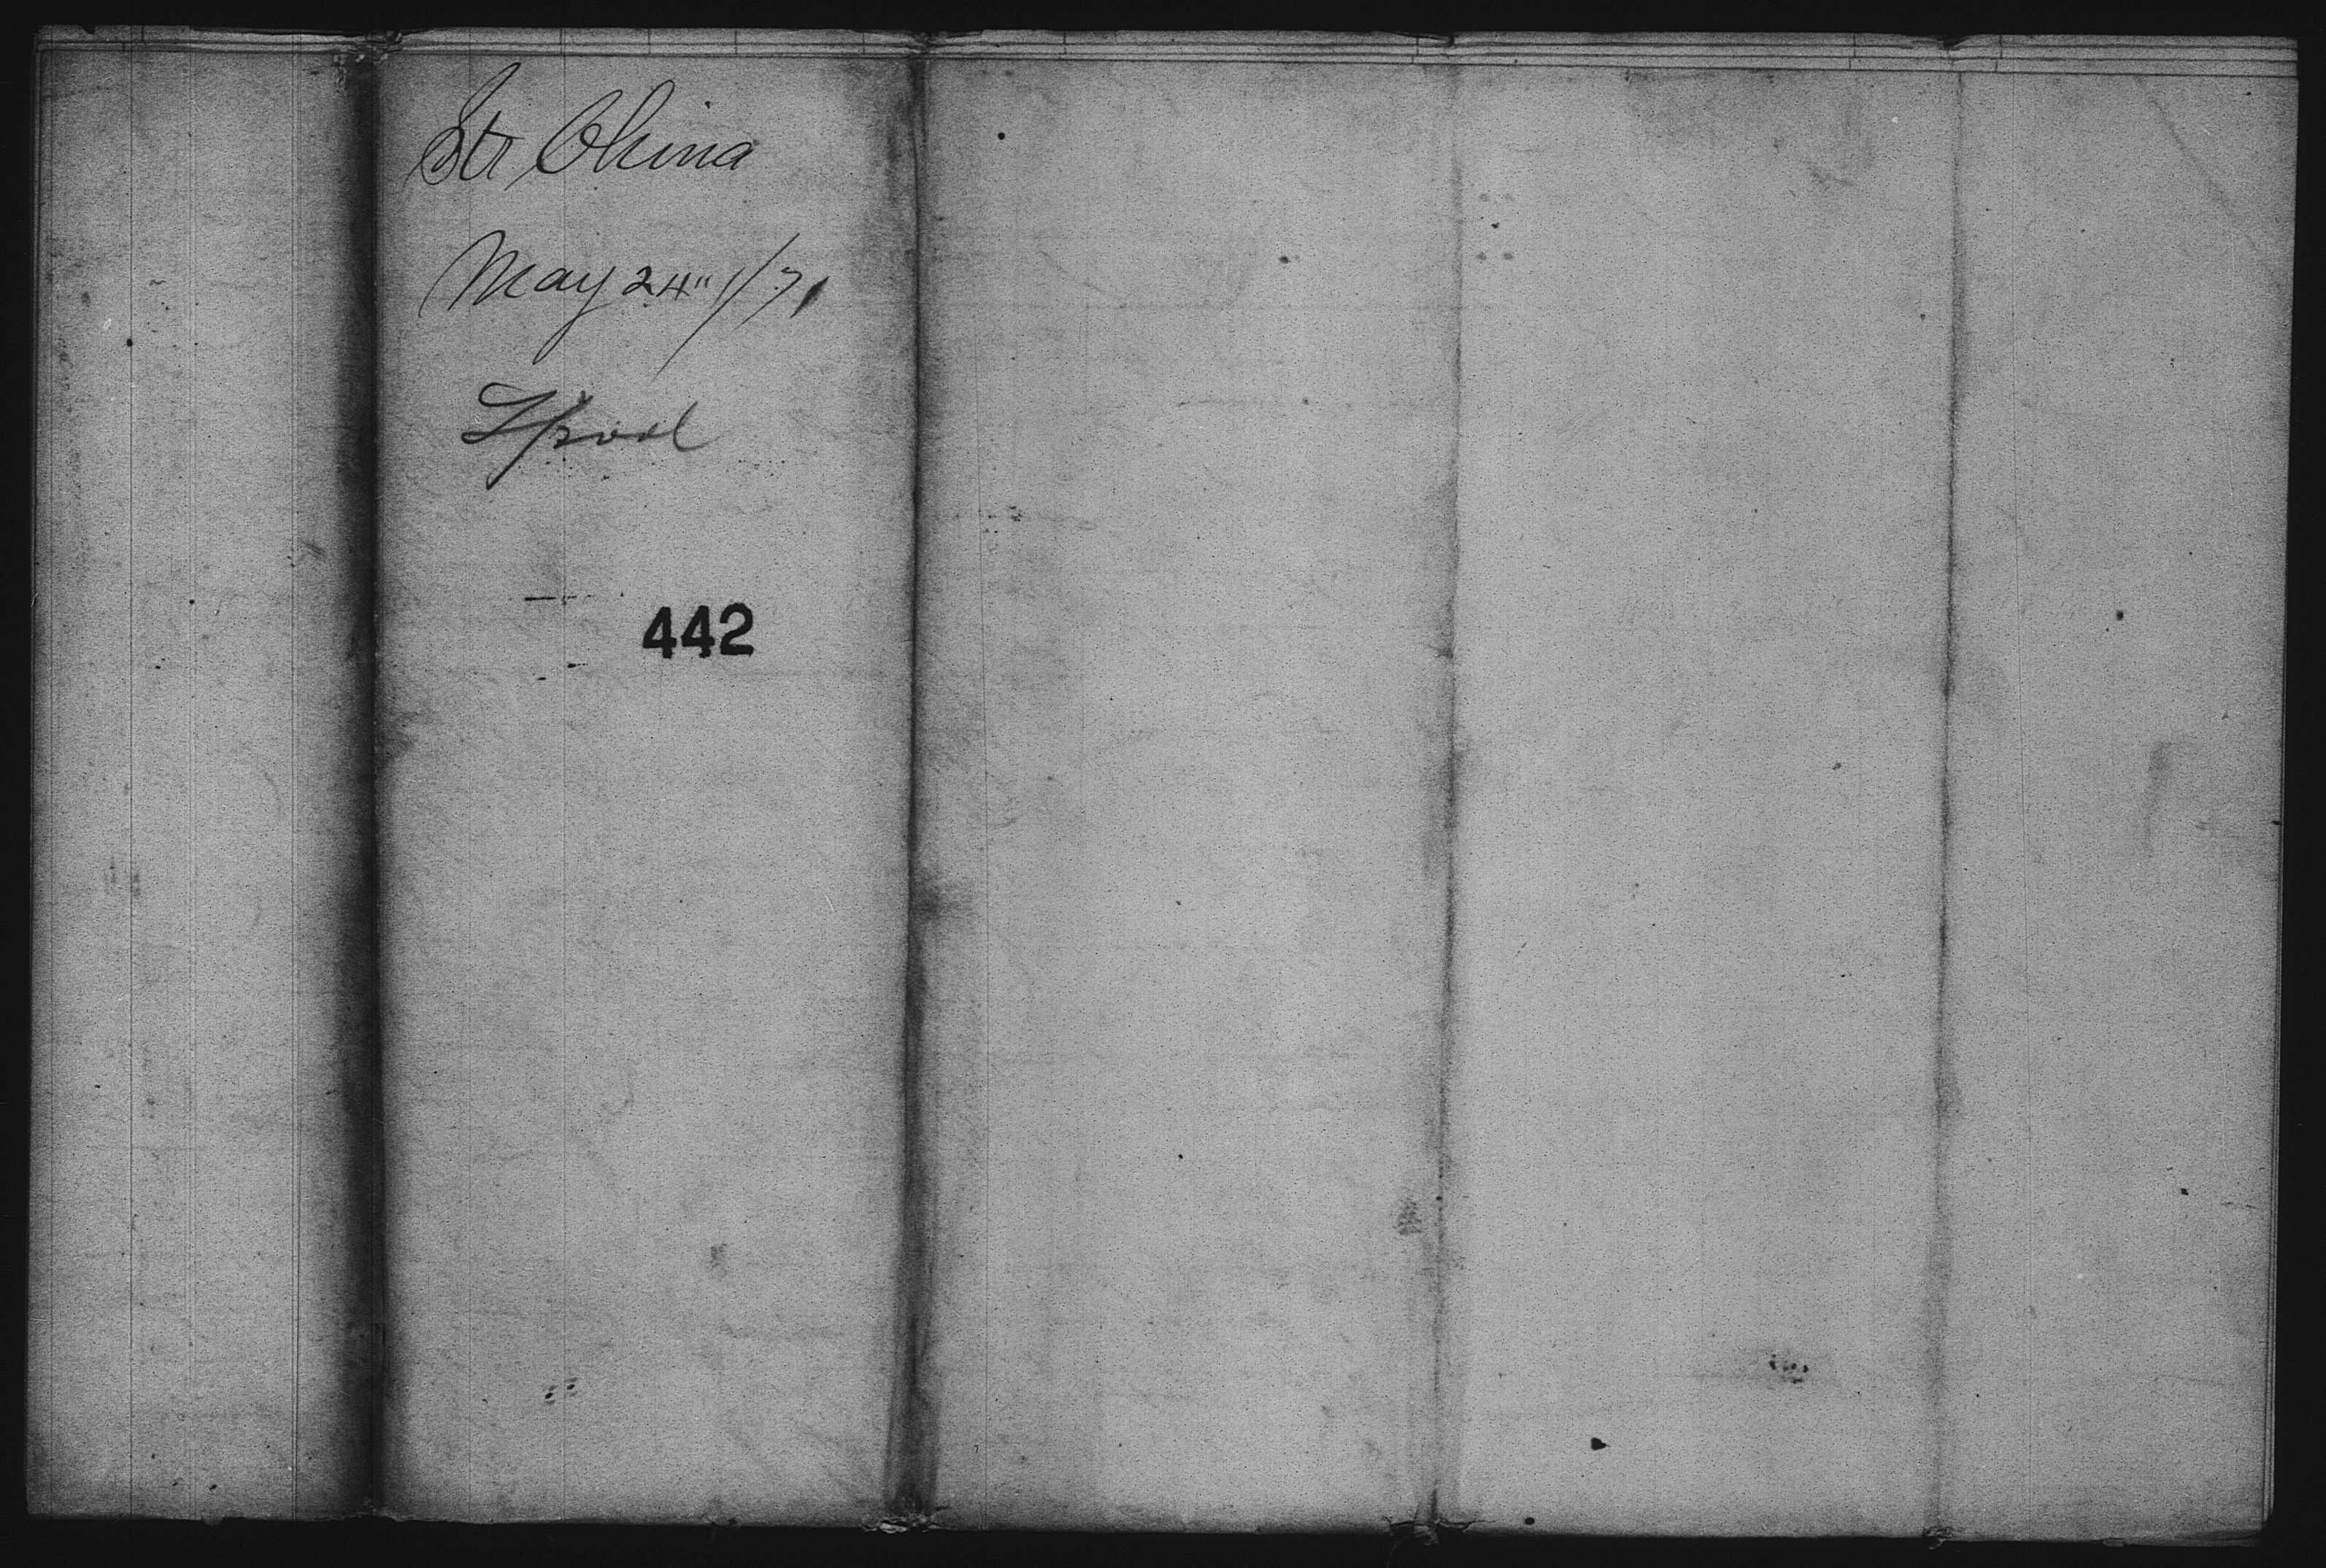 Str China
May 24" 1/71
Lpool
442